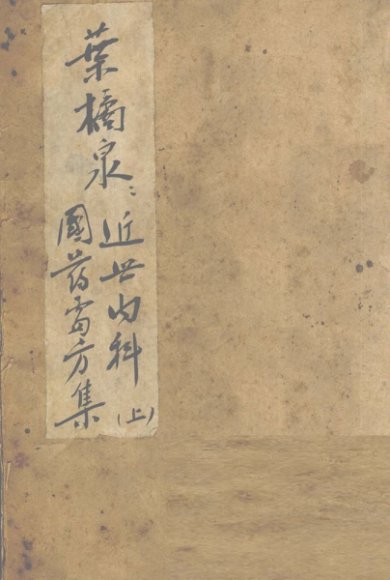 葉橘泉:
近世内科
國葯处方集(上)